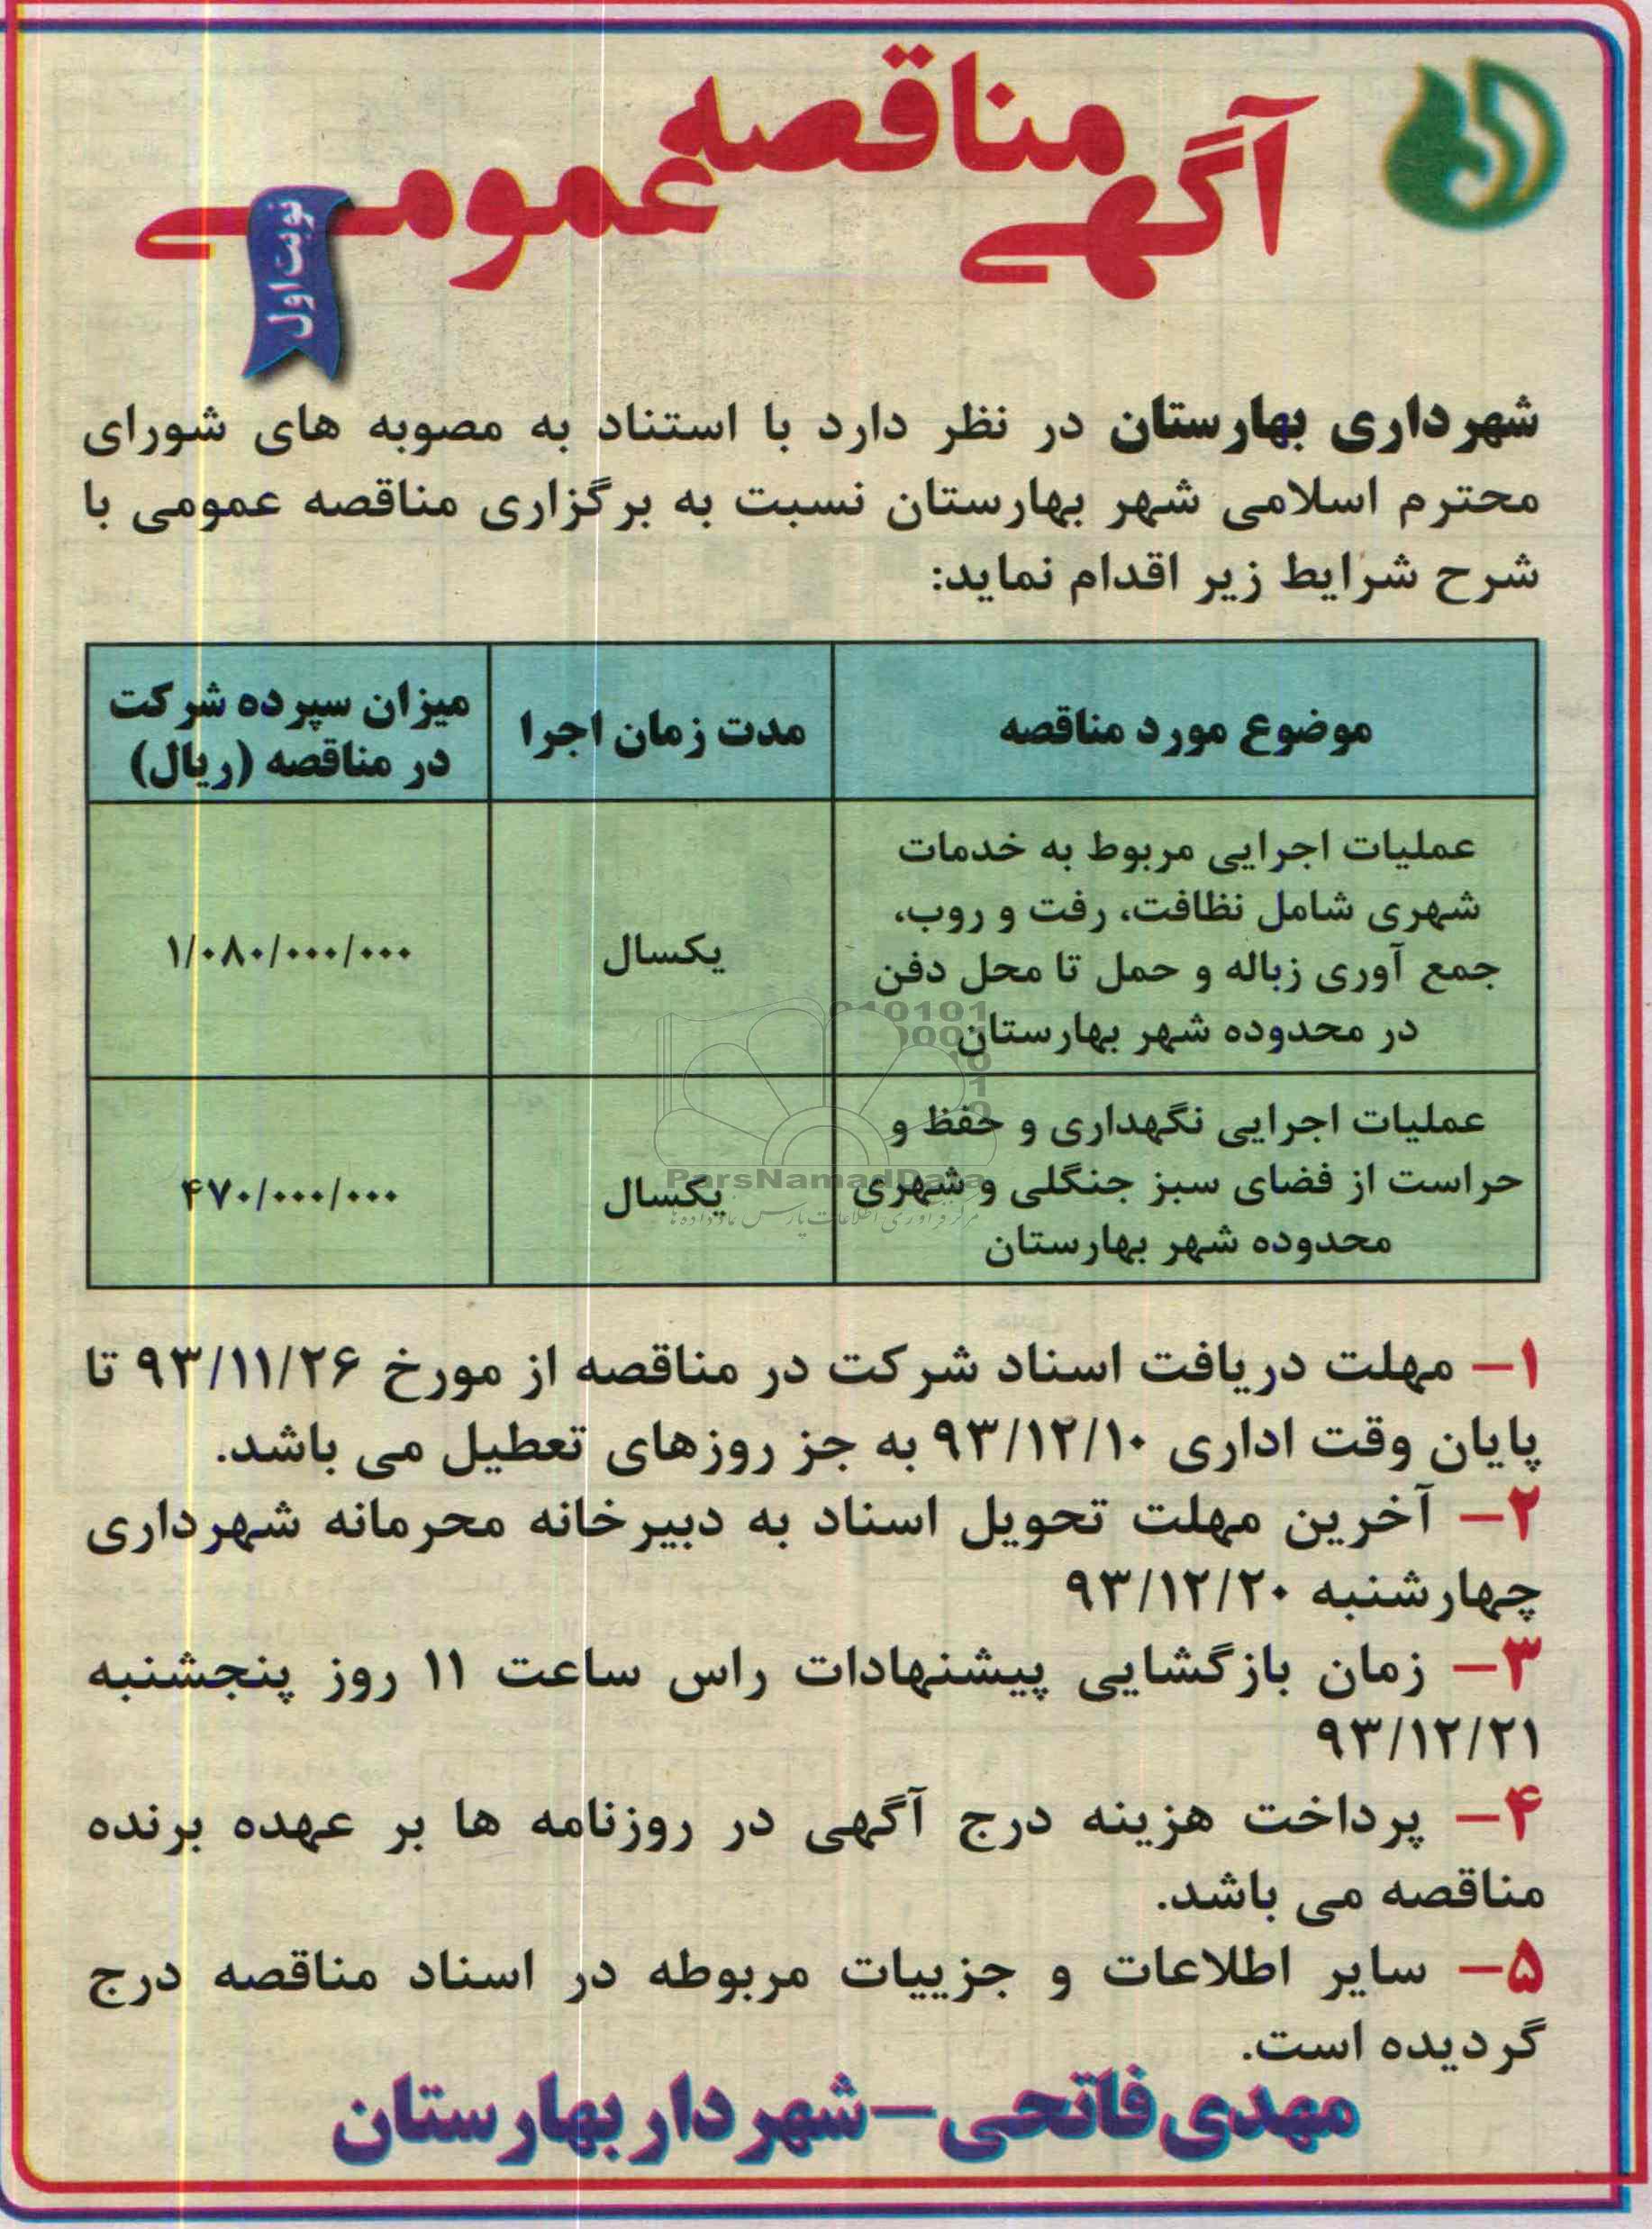 آگهی مناقصه عمومی
نوبت اول
شهرداری بهارستان در نظر دارد با استناد به مصوبه های شورای
محترم اسلامی شهر بهارستان نسبت به برگزاری مناقصه عمومی با
شرح شرایط زیر اقدام نماید:
موضوع مورد مناقصه
مدت زمان اجرا
میزان سپرده شرکت
در مناقصه (ریال)
عملیات اجرایی مربوط به خدمات
شهری شامل نظافت، رفت و روب،
جمع آوری زباله و حمل تا محل دفن
در محدوده شهر بهارستان
یکسال
۱/۰۸۰/۰۰۰/۰۰۰
عملیات اجرایی نگهداری و حفظ و
حراست از فضای سبز جنگلی و شهری
محدوده شهر بهارستان
یکسال
۴۷۰/۰۰۰/۰۰۰
ParsNamadData
۱– مهلت دریافت اسناد شرکت در مناقصه از مورخ ۹۳/۱۱/۲۶ تا
پایان وقت اداری ۹۳/۱۲/۱۰ به جز روزهای تعطیل می باشد.
۲– آخرین مهلت تحویل اسناد به دبیرخانه محرمانه شهرداری
چهارشنبه ۹۳/۱۲/۲۰
۳– زمان بازگشایی پیشنهادات راس ساعت ۱۱ روز پنجشنبه
۹۳/۱۲/۲۱
۴– پرداخت هزینه درج آگهی در روزنامه ها بر عهده برنده
مناقصه می باشد.
۵– سایر اطلاعات و جزییات مربوطه در اسناد مناقصه درج
گردیده است.
مهدی فاتحی – شهردار بهارستان